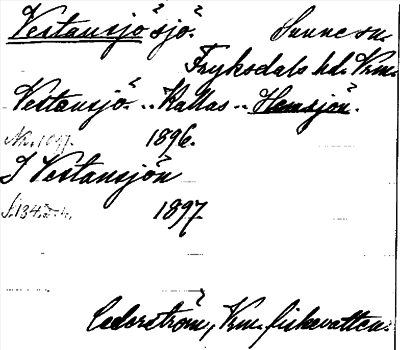 Vestansjö sjö. Sunne sn.
Fryksdals hd. Vrm.
Vestansjö .. Kallas .. Hemsjön.
No. 1097. 1896.
I Vestansjön
S. 134. 1897
Cederström, Vrm. fiskevatten.